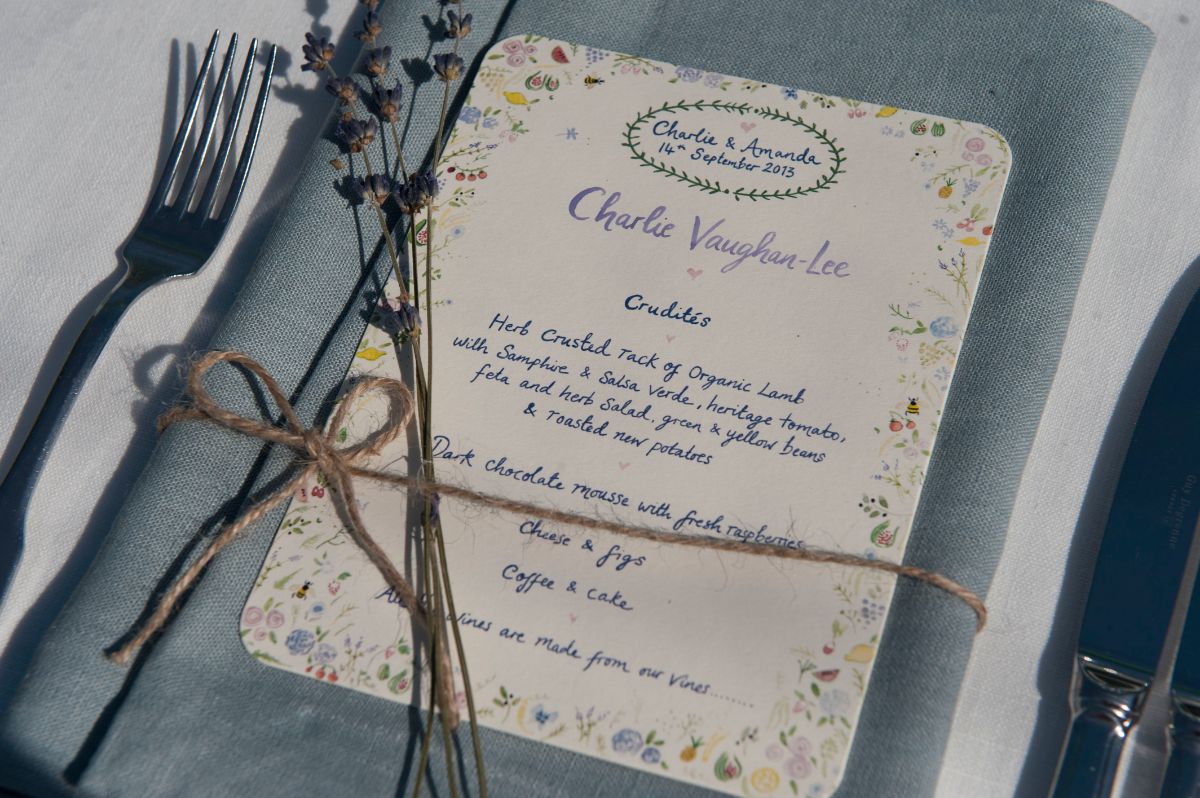 Charlie & Amanda
14th September 2013
Charlie Vaughan-Lee
Crudités
Herb Crusted rack of Organic Lamb
with Samphire & Salsa Verde, heritage tomato,
feta and herb Salad, green & yellow beans
& roasted new potatoes
Dark chocolate mousse with fresh raspberries
Cheese & figs
Coffee & cake
wines are made from our vines........